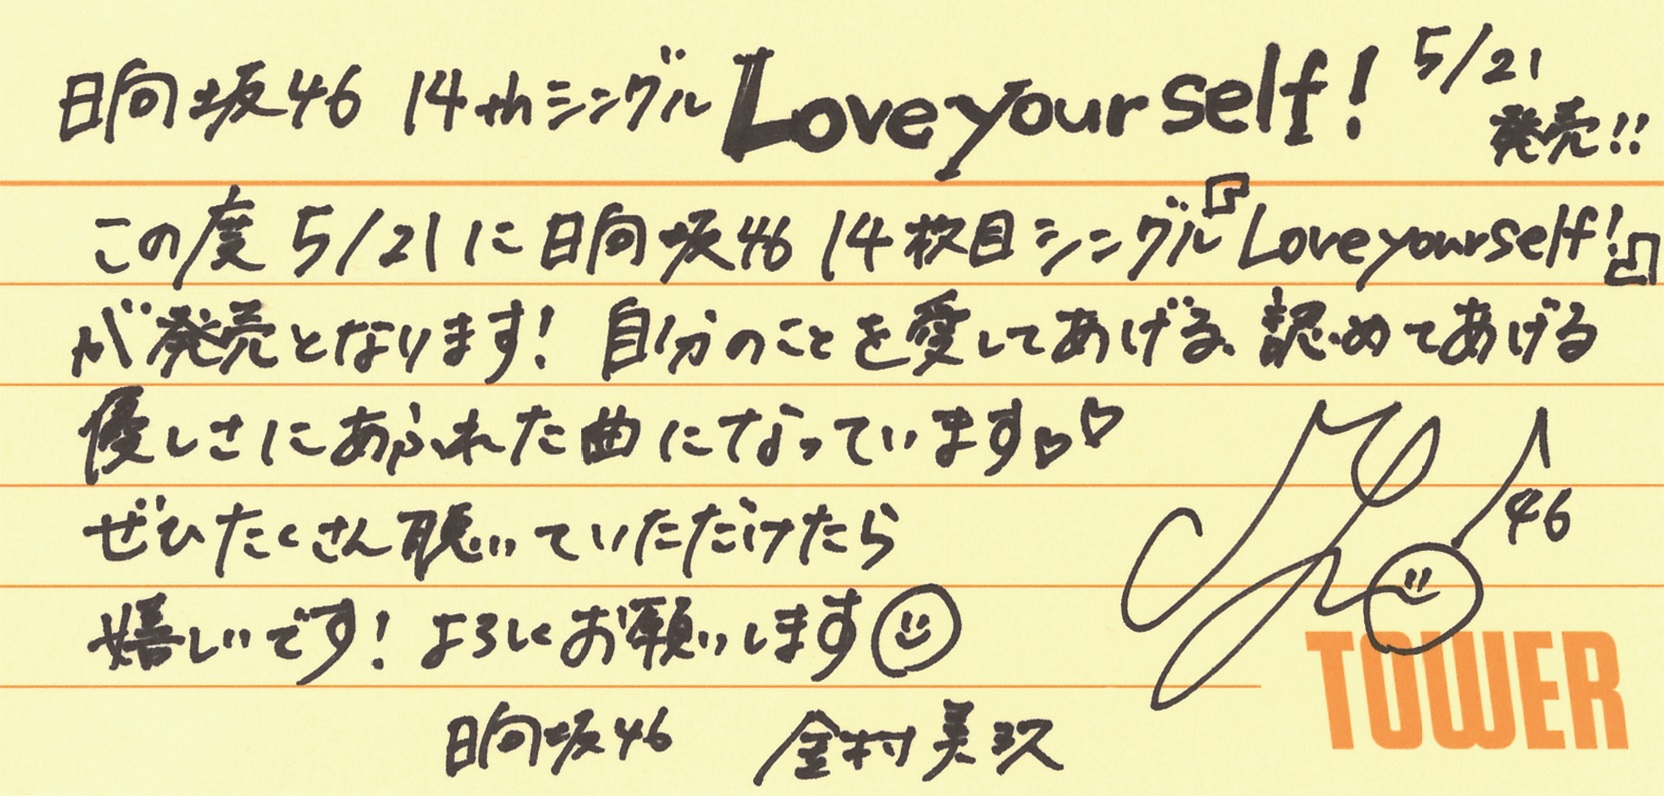 日向坂46 14thシングル Love yourself! 5/21
発売!!
この度 5/21に日向坂46 14枚目シングル『Love yourself!』
が発売となります! 自分のことを愛してあげる、認めてあげる
優しさにあふれた曲になっています♡♡
ぜひたくさん聴いていただけたら
嬉しいです! よろしくお願いします☺
46
日向坂46 金村美玖
TOWER